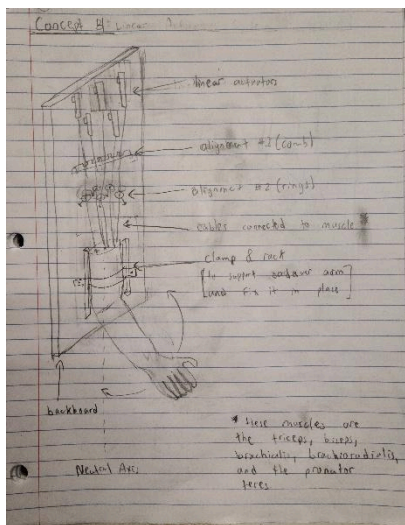 Concept 4: Linear
linear actuators
alignment #1 (comb)
alignment #2 (rings)
cables connected to muscle *
clamp & rack
[to support cadaver arm
and fix it in place]
backboard
Neutral Axis
* these muscles are
the triceps, biceps,
brachialis, brachioradialis,
and the pronator
teres